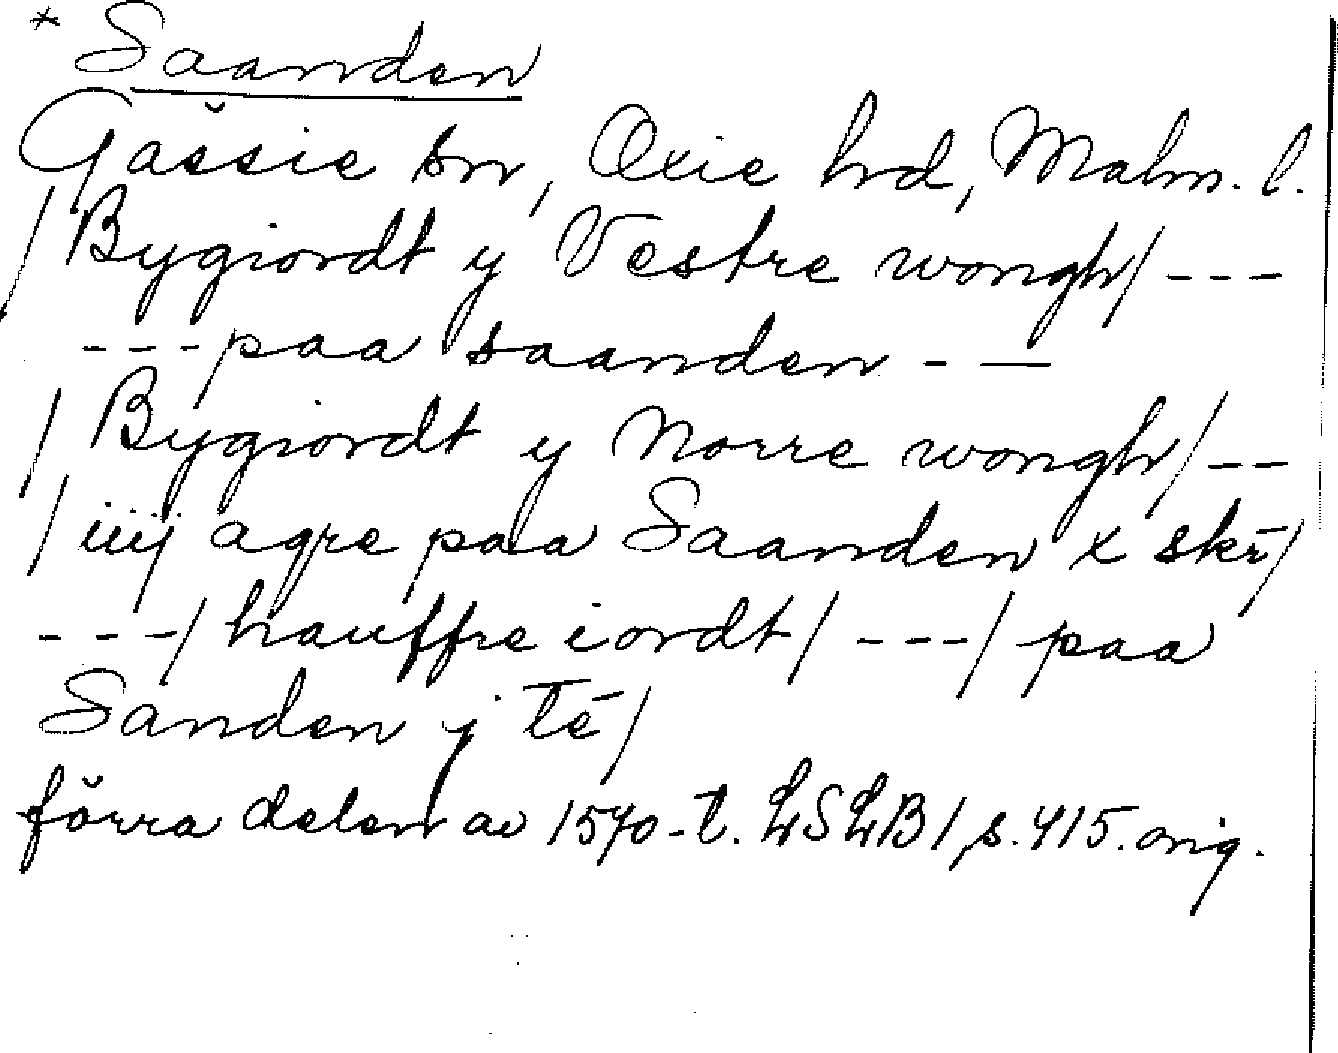 * Saanden
Gässie sn, Oxie hrd, Malm. l.
/ Bygiordt y Vestre wongh / ---
--- paa saanden - —
/ Bygiordt y Norre wongh / --
/ iiij agre paa Saanden x skr̄ /
--- / hauffre iordt / --- / paa
Sanden j tē /
förra delen av 1570-t. LSLB 1, s. 415. orig.